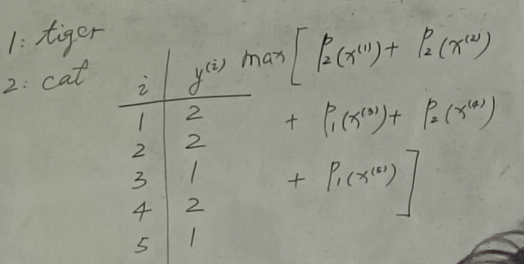 1: tiger
2: cat
i | y⁽ⁱ⁾
1 | 2
2 | 2
3 | 1
4 | 2
5 | 1
max [ P₂(x⁽¹⁾) + P₂(x⁽²⁾)
+ P₁(x⁽³⁾) + P₂(x⁽⁴⁾)
+ P₁(x⁽⁵⁾) ]